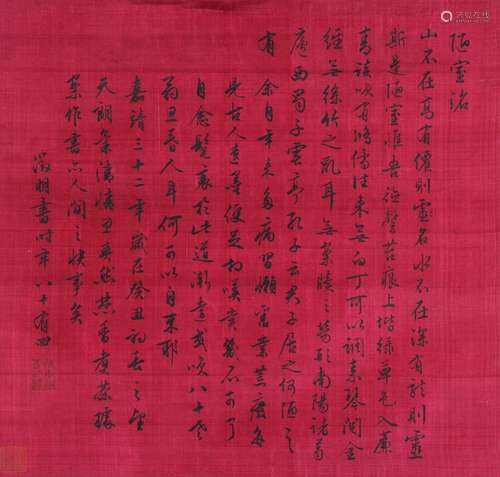 陋室銘
山不在高有僊則靈名水不在深有龍則靈
斯是陋室惟吾德馨苔痕上堦綠草色入簾
青談咲有鴻儒往來無白丁可以調素琴閱金
經無絲竹之亂耳無案牘之勞形南陽諸葛
廬西蜀子雲亭孔子云君子居之何陋之
有 余自年來多病習懶舊業荒廢每
見古人
自念髮衰於此道漸 或 八十老
翁 人耳何可以自棄耶
嘉靖三十二年歲在癸丑初春之望
天朗氣清 焚香煮茶據
案作書亦人間之快事矣
徵明書時年八十有四